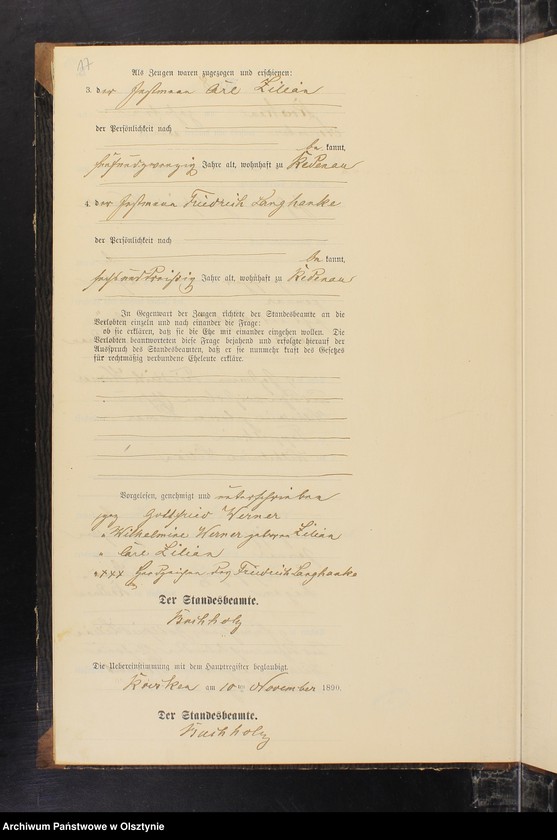 17
Als Zeugen waren zugezogen und erschienen:
3. der Instmann Carl Lilian
der Persönlichkeit nach
be kannt,
fünfundzwanzig Jahre alt, wohnhaft zu Redenau
4. der Instmann Friedrich Langhanke
der Persönlichkeit nach
be kannt,
sechsunddreißig Jahre alt, wohnhaft zu Redenau
In Gegenwart der Zeugen richtete der Standesbeamte an die
Verlobten einzeln und nach einander die Frage:
ob sie erklären, daß sie die Ehe mit einander eingehen wollen. Die
Verlobten beantworteten diese Frage bejahend und erfolgte hierauf der
Ausspruch des Standesbeamten, daß er sie nunmehr kraft des Gesetzes
für rechtmäßig verbundene Eheleute erkläre.
Vorgelesen, genehmigt und unterschrieben
gez Gottfried Werner
" Wilhelmine Werner geborene Lilian
" Carl Lilian
" +++ Handzeichen des Friedrich Langhanke
Der Standesbeamte.
Die Uebereinstimmung mit dem Hauptregister beglaubigt.
am 10ten November 1890.
Der Standesbeamte.
Archiwum Państwowe w Olsztynie